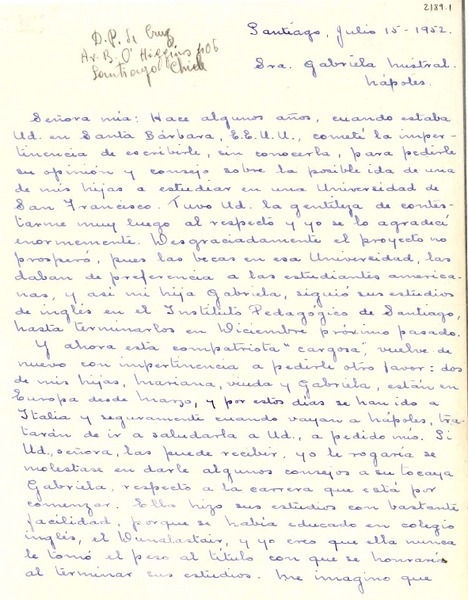 2189.1
D. P. de Cruz
Av. B. O'Higgins 406
Santiago Chile
Santiago, Julio 15-1952.
Sra. Gabriela Mistral.
Nápoles.
Señora mía: Hace algunos años, cuando estaba
Ud. en Santa Bárbara, E.E.U.U., cometí la imper-
tinencia de escribirle, sin conocerla, para pedirle
su opinión y consejo sobre la posible ida de una
de mis hijas a estudiar en una Universidad de
San Francisco. Tuvo Ud. la gentileza de contes-
tarme muy luego al respecto y yo se lo agradecí
enormemente. Desgraciadamente el proyecto no
prosperó, pues las becas en esa Universidad, las
daban de preferencia a las estudiantes america-
nas, y así mi hija Gabriela, siguió sus estudios
de inglés en el Instituto Pedagógico de Santiago,
hasta terminarlos en Diciembre próximo pasado.
Y ahora esta compatriota "cargosa", vuelve de
nuevo con impertinencia a pedirle otro favor: dos
de mis hijas, Mariana, viuda y Gabriela, están en
Europa desde Marzo, y por estos días se han ido a
Italia y seguramente cuando vayan a Nápoles, tra-
tarán de ir a saludarla a Ud., a pedido mío. Si
Ud., señora, las puede recibir, yo le rogaría se
molestase en darle algunos consejos a su tocaya
Gabriela, respecto a la carrera que está por
comenzar. Ella hizo sus estudios con bastante
facilidad, porque se había educado en colegio
inglés, el Dunalastair, y yo creo que ella nunca
le tomó el peso al título con que se honraría
al terminar sus estudios. Me imagino que